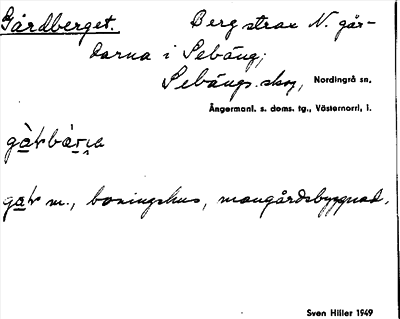 Gårdberget. Berg strax N. går-
darna i Sebäng;
Sebängs skog, Nordingrå sn,
Ångermanl. s. doms. tg., Västernorrl. l.
gàrbàrʝa
gàr m., boningshus, mangårdsbyggnad.
Sven Hiller 1949